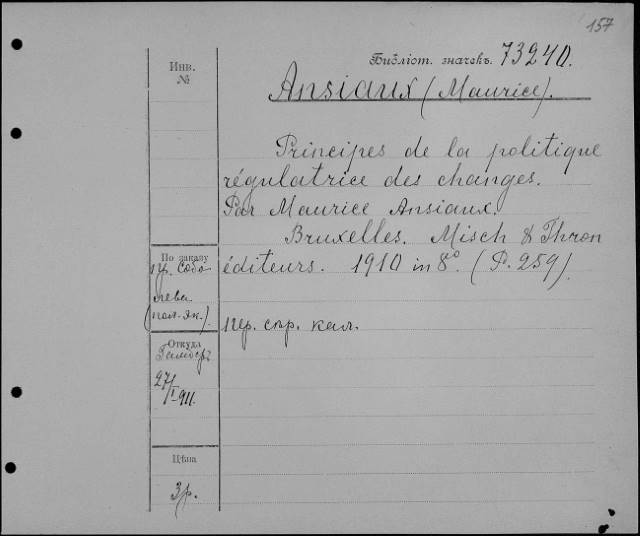 157
Библіот. значекъ. 73240.
Инв.
№
Ansiaux (Maurice).
Principes de la politique
régulatrice des changes.
Par Maurice Ansiaux.
Bruxelles. Misch & Thron
éditeurs. 1910 in 8º. (P. 259).
По заказу
пр. Собо
лева.
(пол. эк.).
пер. спр. кал.
Откуда
27/I 911.
Цѣна
3 р.